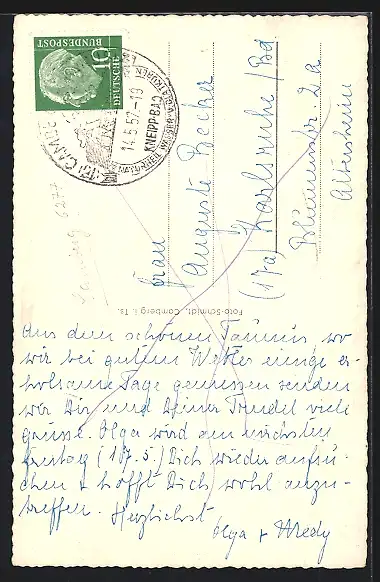 10
DEUTSCHE
BUNDESPOST
(16) CAMBERG
14.5.57.-19
KNEIPP-BAD
Camberg 6277
Frau
Auguste Becker
(17a) Karlsruhe /Bd
Blumenstr. 2a
Altersheim
Foto-Schmidt, Camberg i. Ts.
Aus dem schönen Taunus wo
wir bei gutem Wetter einige er-
holsame Tage geniessen senden
wir Dir und Deiner Trudel viele
Grüsse. Olga wird am nächsten
Freitag (17.5.) Dich wieder aufsu-
chen & hofft Dich wohl anzu-
treffen. Herzlichst
Olga +